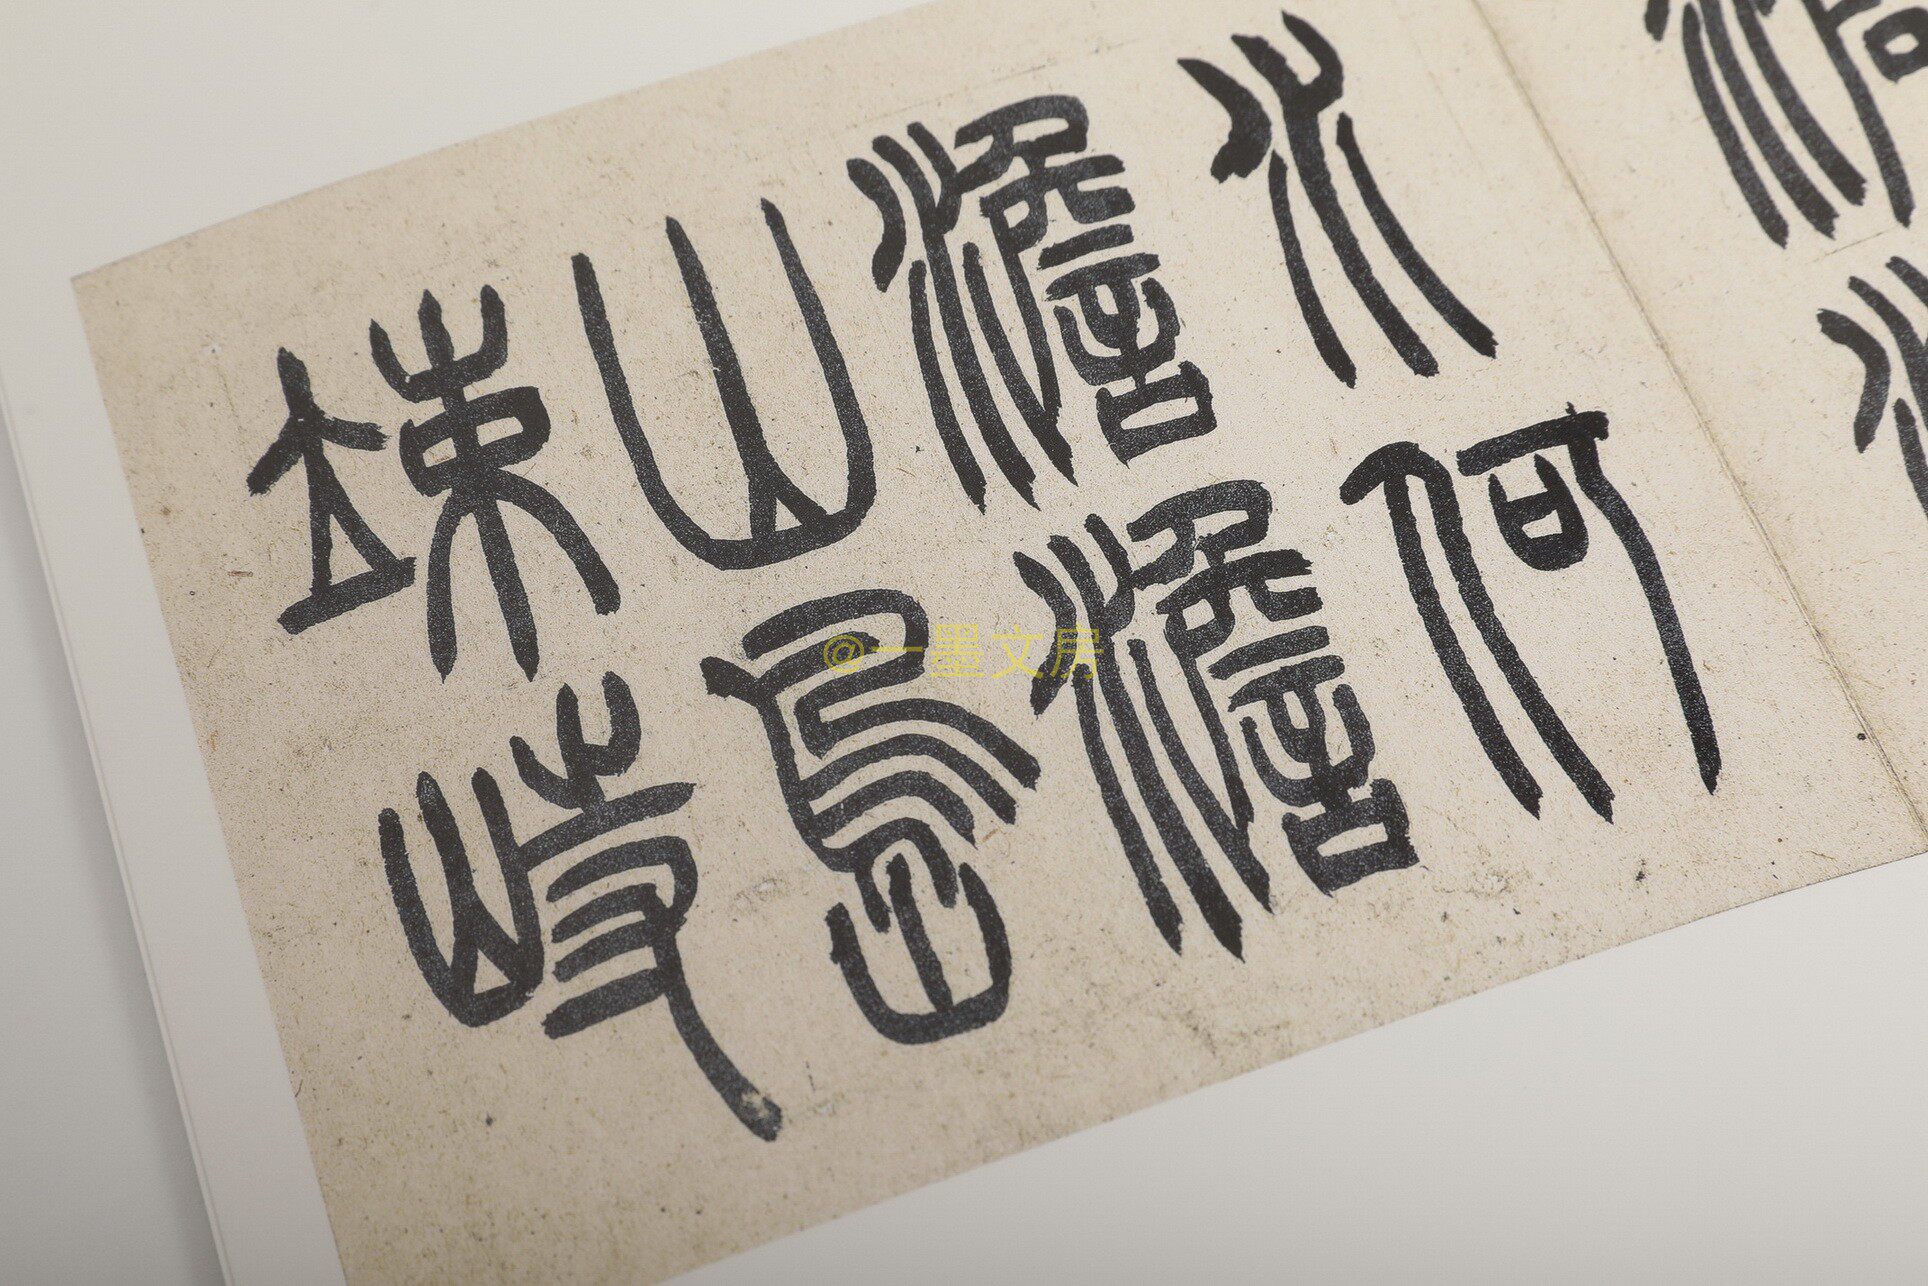 水何
澹澹
山島
竦峙
@一墨文房